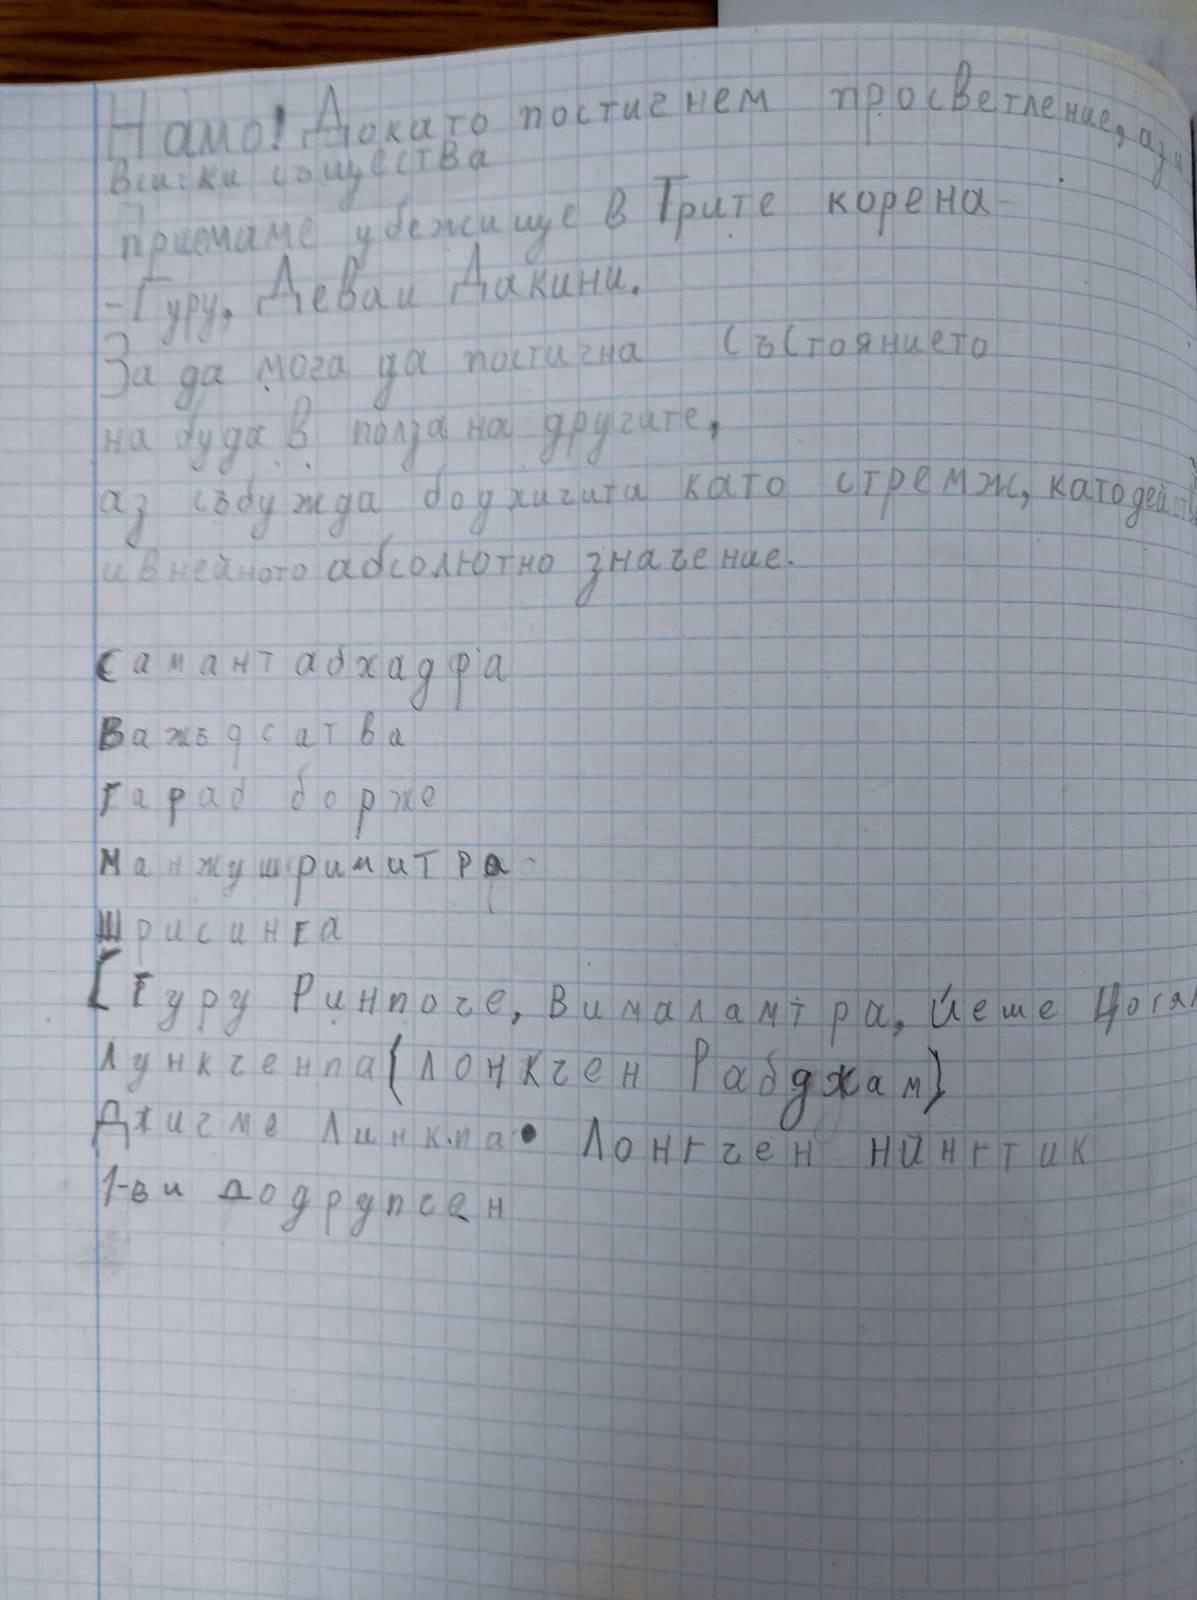 Намо! Докато постигнем просветление, аз и
Всички същества
приемаме убежище в Трите корена-
-Гуру, Дева и Дакини.
За да мога да постигна състоянието
на буда в полза на другите,
аз събужда бодхичита като стремж, като дейс
и в нейното абсолютно значение.
самантабхадфа
Важъдсатва
гараб борже
манжушримитра
шрисинга
[Гуру Ринпоче, Вималамтра, Йеше Цогял
Лункченпа(лонкчен Рабджам)
Джигме Линкпа • Лонгчен нингтик
1-ви додрупсен